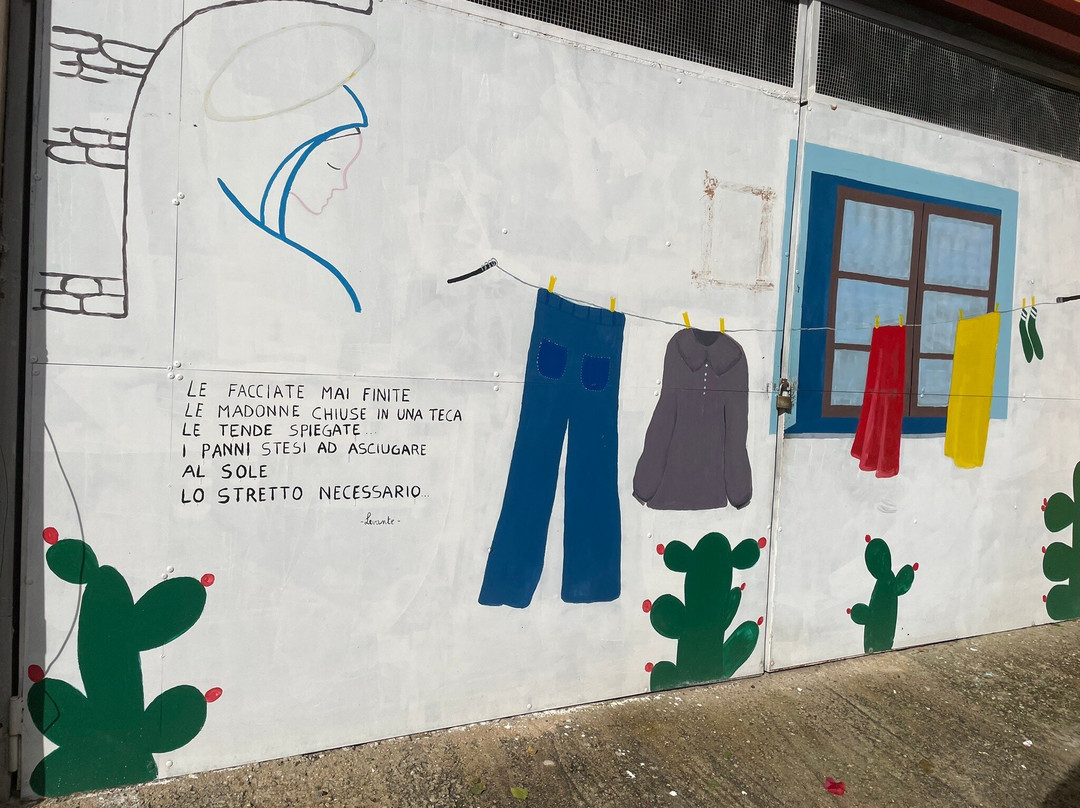 LE FACCIATE MAI FINITE
LE MADONNE CHIUSE IN UNA TECA
LE TENDE SPIEGATE...
I PANNI STESI AD ASCIUGARE
AL SOLE
LO STRETTO NECESSARIO...
-Levante-